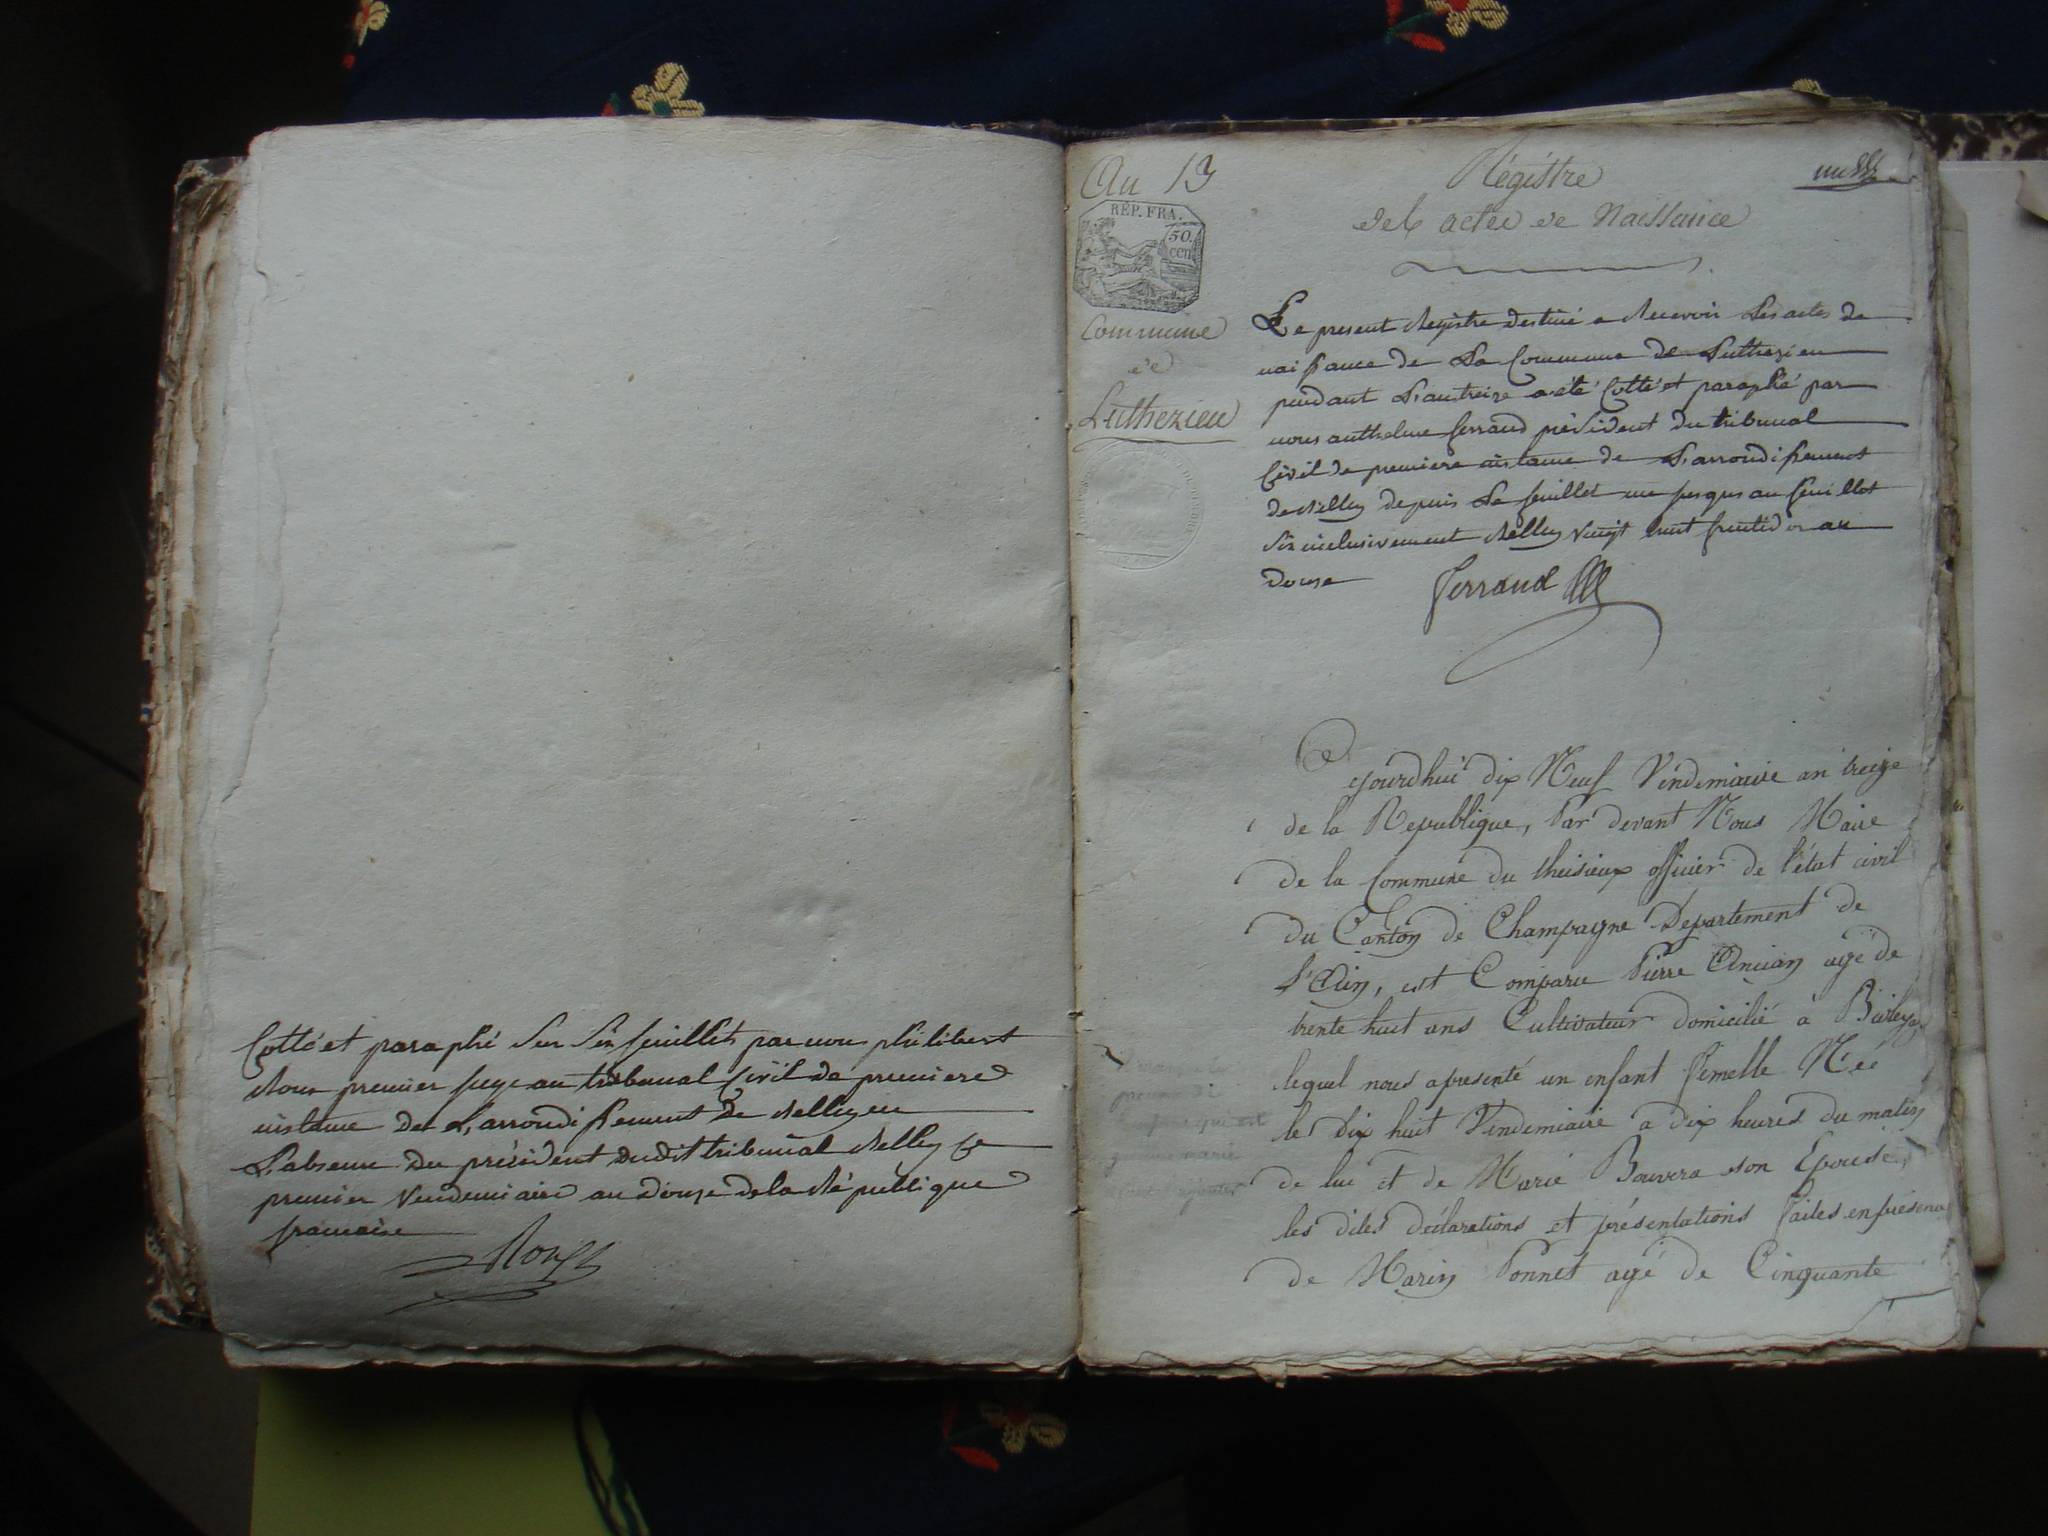 Cotté et paraphé sur six feuillets par nous philibert
Roux premier juge au tribunal civil de premiere
instance de L'arrondissement de Belley en
L'absence du président dudit tribunal Belley ce
premier vendemiaire an douze de la République
francaise
Roux
An 13
RÉP. FRA.
50
cen
Commune
de
Luthezieu
Régistre
des actes de Naissance
un
Le present Registre destiné a Recevoir Les actes de
naissance de La Commune de Luthezieu
pendant L'an treize a été Cotté et paraphé par
nous anthelme ferrand président du tribunal
Civil de premiere instance de L'arrondissement
de Belley depuis Le feuillet un jusques au feuillet
six inclusivement Belley vingt huit fructidor an
douze
Ferrand
Cejourdhui dix Neuf Vendemiaire an treize
de la Republique, Par devant Nous Maire
de la Commune du officier de l'état civil
du Canton de Champagne Departement de
l'Ain, est Comparu Pierre Ancian agé de
trente huit ans Cultivateur domicilié à
lequel nous a presenté un enfant femelle Née
le dix huit Vendemiaire a dix heures du matin
de lui et de Marie son Epouse,
les dites déclarations et présentations faites en présence
de Marin Ponnet agé de Cinquante